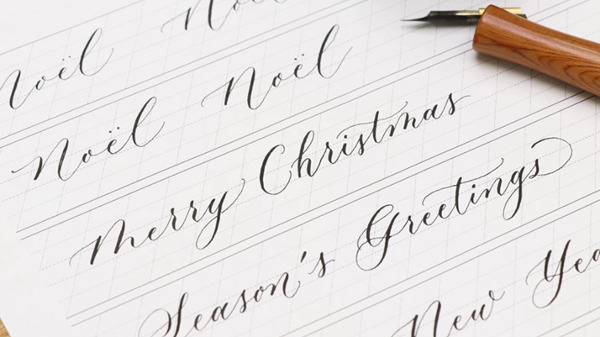 Noël No
Noël Noël
Merry Christmas
Season's Greetings
New Yea